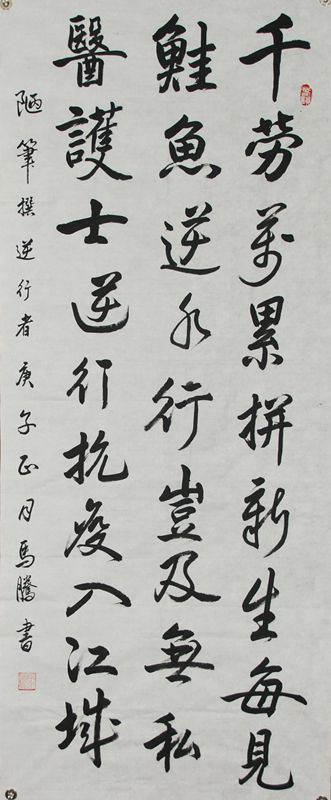 千勞萬累拼新生每見
鮭魚逆水行豈及無私
醫護士逆行抗疫入江城
陋筆撰逆行者庚子正月馬騰書